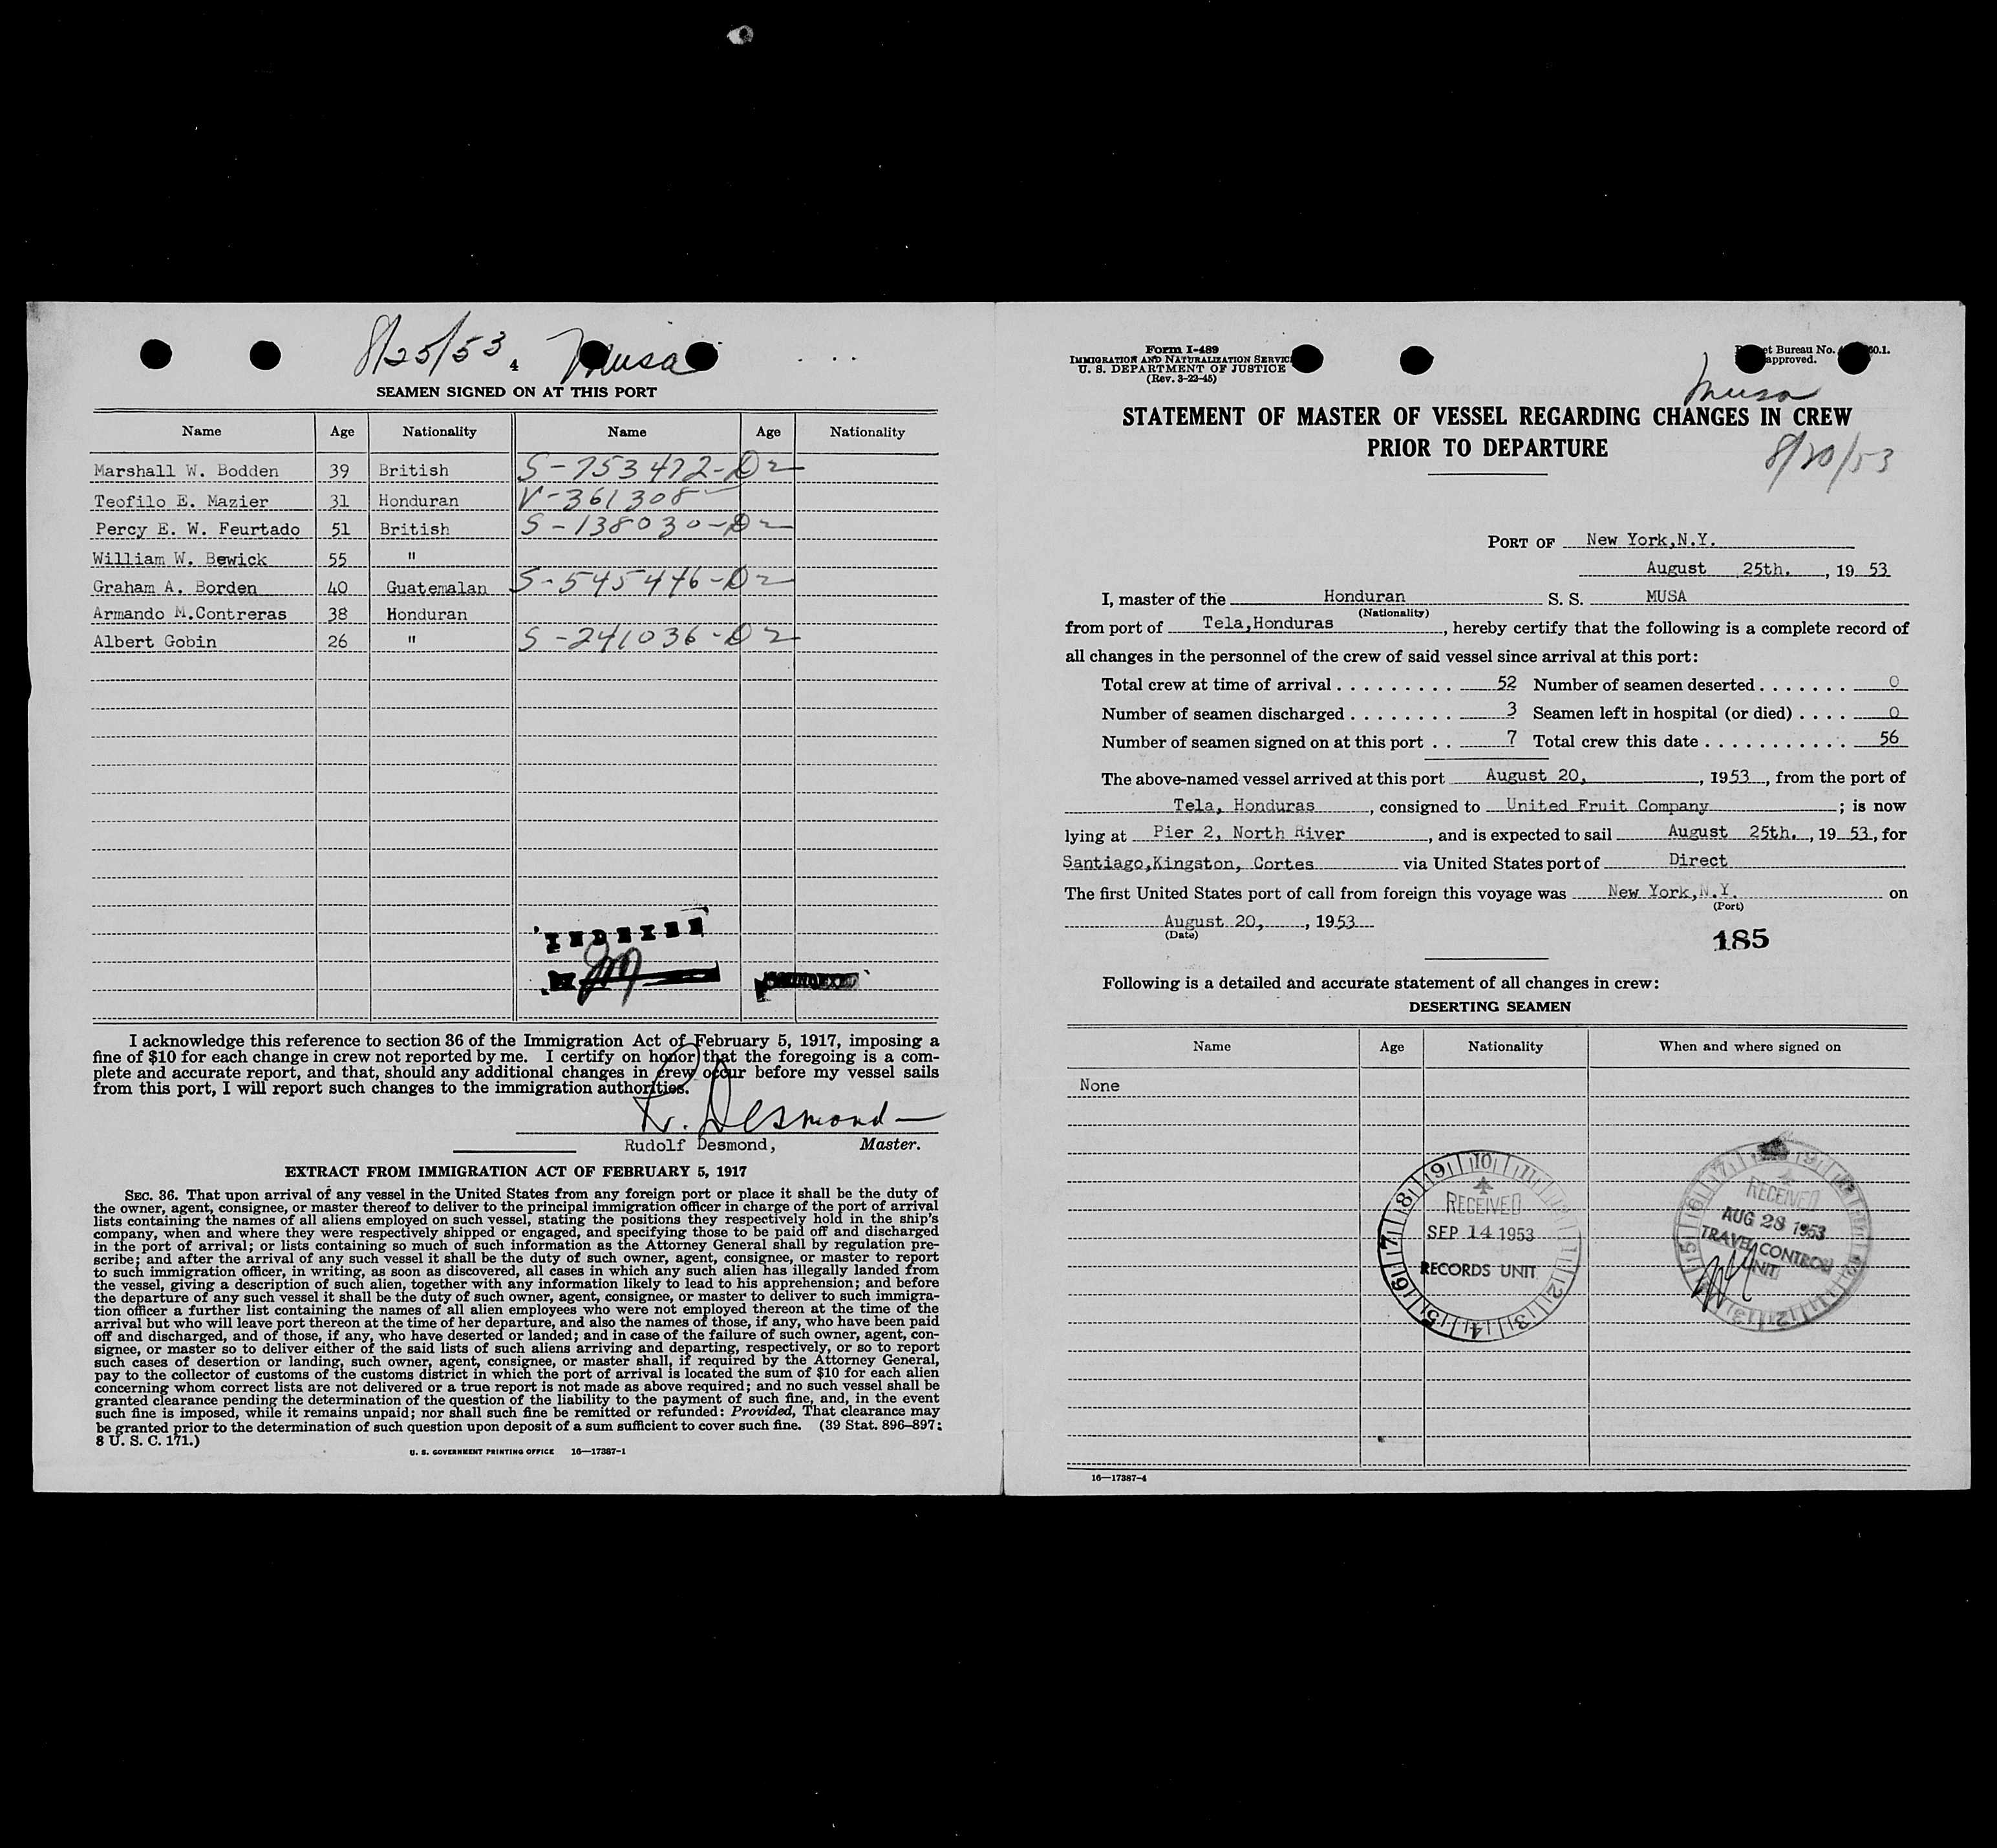 8/25/53. Musa
4
SEAMEN SIGNED ON AT THIS PORT
Name Age Nationality Name Age Nationality
Marshall W. Bodden 39 British S-753472-D2
Teofilo E. Mazier 31 Honduran V-361308
Percy E. W. Feurtado 51 British S-138030-D2
William W. Bewick 55 "
Graham A. Borden 40 Guatemalan S-545446-D2
Armando M.Contreras 38 Honduran
Albert Gobin 26 " S-241036-D2
INDEXED
I acknowledge this reference to section 36 of the Immigration Act of February 5, 1917, imposing a
fine of $10 for each change in crew not reported by me. I certify on honor that the foregoing is a com-
plete and accurate report, and that, should any additional changes in crew occur before my vessel sails
from this port, I will report such changes to the immigration authorities.
R. Desmond
Rudolf Desmond, Master.
EXTRACT FROM IMMIGRATION ACT OF FEBRUARY 5, 1917
SEC. 36. That upon arrival of any vessel in the United States from any foreign port or place it shall be the duty of
the owner, agent, consignee, or master thereof to deliver to the principal immigration officer in charge of the port of arrival
lists containing the names of all aliens employed on such vessel, stating the positions they respectively hold in the ship's
company, when and where they were respectively shipped or engaged, and specifying those to be paid off and discharged
in the port of arrival; or lists containing so much of such information as the Attorney General shall by regulation pre-
scribe; and after the arrival of any such vessel it shall be the duty of such owner, agent, consignee, or master to report
to such immigration officer, in writing, as soon as discovered, all cases in which any such alien has illegally landed from
the vessel, giving a description of such alien, together with any information likely to lead to his apprehension; and before
the departure of any such vessel it shall be the duty of such owner, agent, consignee, or master to deliver to such immigra-
tion officer a further list containing the names of all alien employees who were not employed thereon at the time of the
arrival but who will leave port thereon at the time of her departure, and also the names of those, if any, who have been paid
off and discharged, and of those, if any, who have deserted or landed; and in case of the failure of such owner, agent, con-
signee, or master so to deliver either of the said lists of such aliens arriving and departing, respectively, or so to report
such cases of desertion or landing, such owner, agent, consignee, or master shall, if required by the Attorney General,
pay to the collector of customs of the customs district in which the port of arrival is located the sum of $10 for each alien
concerning whom correct lists are not delivered or a true report is not made as above required; and no such vessel shall be
granted clearance pending the determination of the question of the liability to the payment of such fine, and, in the event
such fine is imposed, while it remains unpaid; nor shall such fine be remitted or refunded: Provided, That clearance may
be granted prior to the determination of such question upon deposit of a sum sufficient to cover such fine. (39 Stat. 896–897;
8 U. S. C. 171.)
U. S. GOVERNMENT PRINTING OFFICE 16—17387-1
Form I-489
IMMIGRATION AND NATURALIZATION SERVIC
U. S. DEPARTMENT OF JUSTICE
(Rev. 3-22-45)
et Bureau No.
approved.
Musa
STATEMENT OF MASTER OF VESSEL REGARDING CHANGES IN CREW
PRIOR TO DEPARTURE
8/20/53
PORT OF New York,N.Y.
August 25th. , 19 53
I, master of the Honduran S. S. MUSA
(Nationality)
from port of Tela,Honduras , hereby certify that the following is a complete record of
all changes in the personnel of the crew of said vessel since arrival at this port:
Total crew at time of arrival 52 Number of seamen deserted 0
Number of seamen discharged 3 Seamen left in hospital (or died) 0
Number of seamen signed on at this port 7 Total crew this date 56
The above-named vessel arrived at this port August 20, , 1953 , from the port of
Tela, Honduras , consigned to United Fruit Company ; is now
lying at Pier 2, North River , and is expected to sail August 25th. , 19 53 , for
Santiago,Kingston, Cortes via United States port of Direct
The first United States port of call from foreign this voyage was New York,N.Y. on
(Port)
August 20, , 1953
(Date)
185
Following is a detailed and accurate statement of all changes in crew:
DESERTING SEAMEN
Name Age Nationality When and where signed on
None
RECEIVED
SEP 14 1953
RECORDS UNIT
RECEIVED
AUG 28 1953
TRAVEL CONTROL
UNIT
16—17387-4